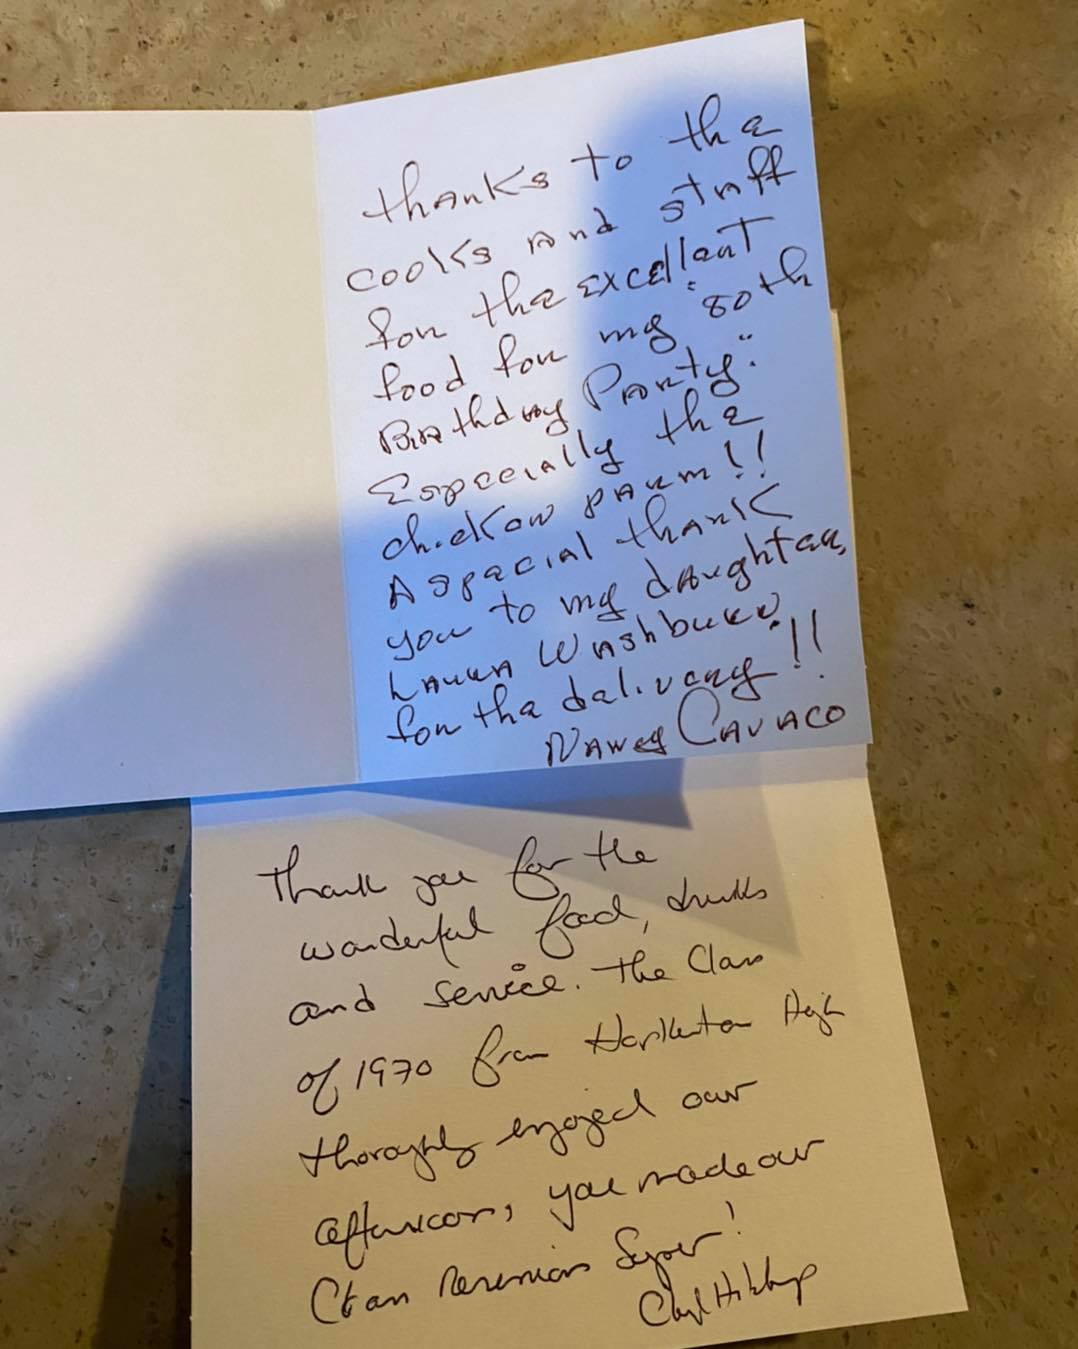 thanks to the
cooks and staff
for the excellent
food for my 80th
Birthday Party".
Especially the
chicken parm!!
A special thank
you to my daughter,
Laura Washburn
for the delivery!!
Nancy CAVACO
Thank you for the
wonderful food, drinks
and service. The Class
of 1970 from Hopkinton High
thoroughly enjoyed our
afternoon, you made our
Class Reunion Super!